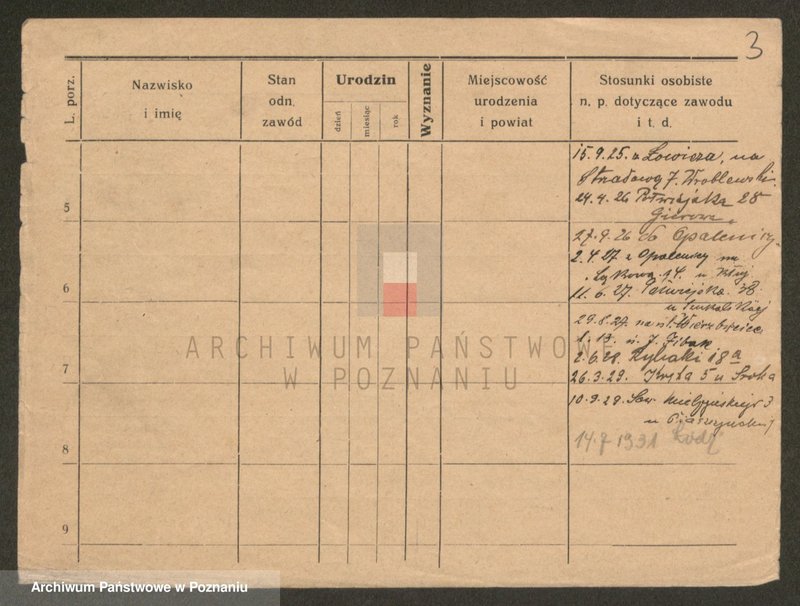 3
L. porz.
Nazwisko
i imię
Stan
odn.
zawód
Urodzin
dzień
miesiąc
rok
Wyznanie
Miejscowość
urodzenia
i powiat
Stosunki osobiste
n. p. dotyczące zawodu
i t. d.
15.9.25. z Łowicza, na
7. Wroblewski
5
24.4.26 28
27.9.26 do Opalenicy
2.4.27 z Opalenicy na
Łąkową 14 u
6
11.6.27. 38
u
29.8.27. na ul. Wierzbięcice
13 u J.
2.6.28. Rybaki 18a
7
26.3.29. 5 u Sroka
10.9.29. Sew. Mielżyńskiego 3
u
14.7 1931 Łódź
8
9
ARCHIWUM PAŃSTWOWE
W POZNANIU
Archiwum Państwowe w Poznaniu